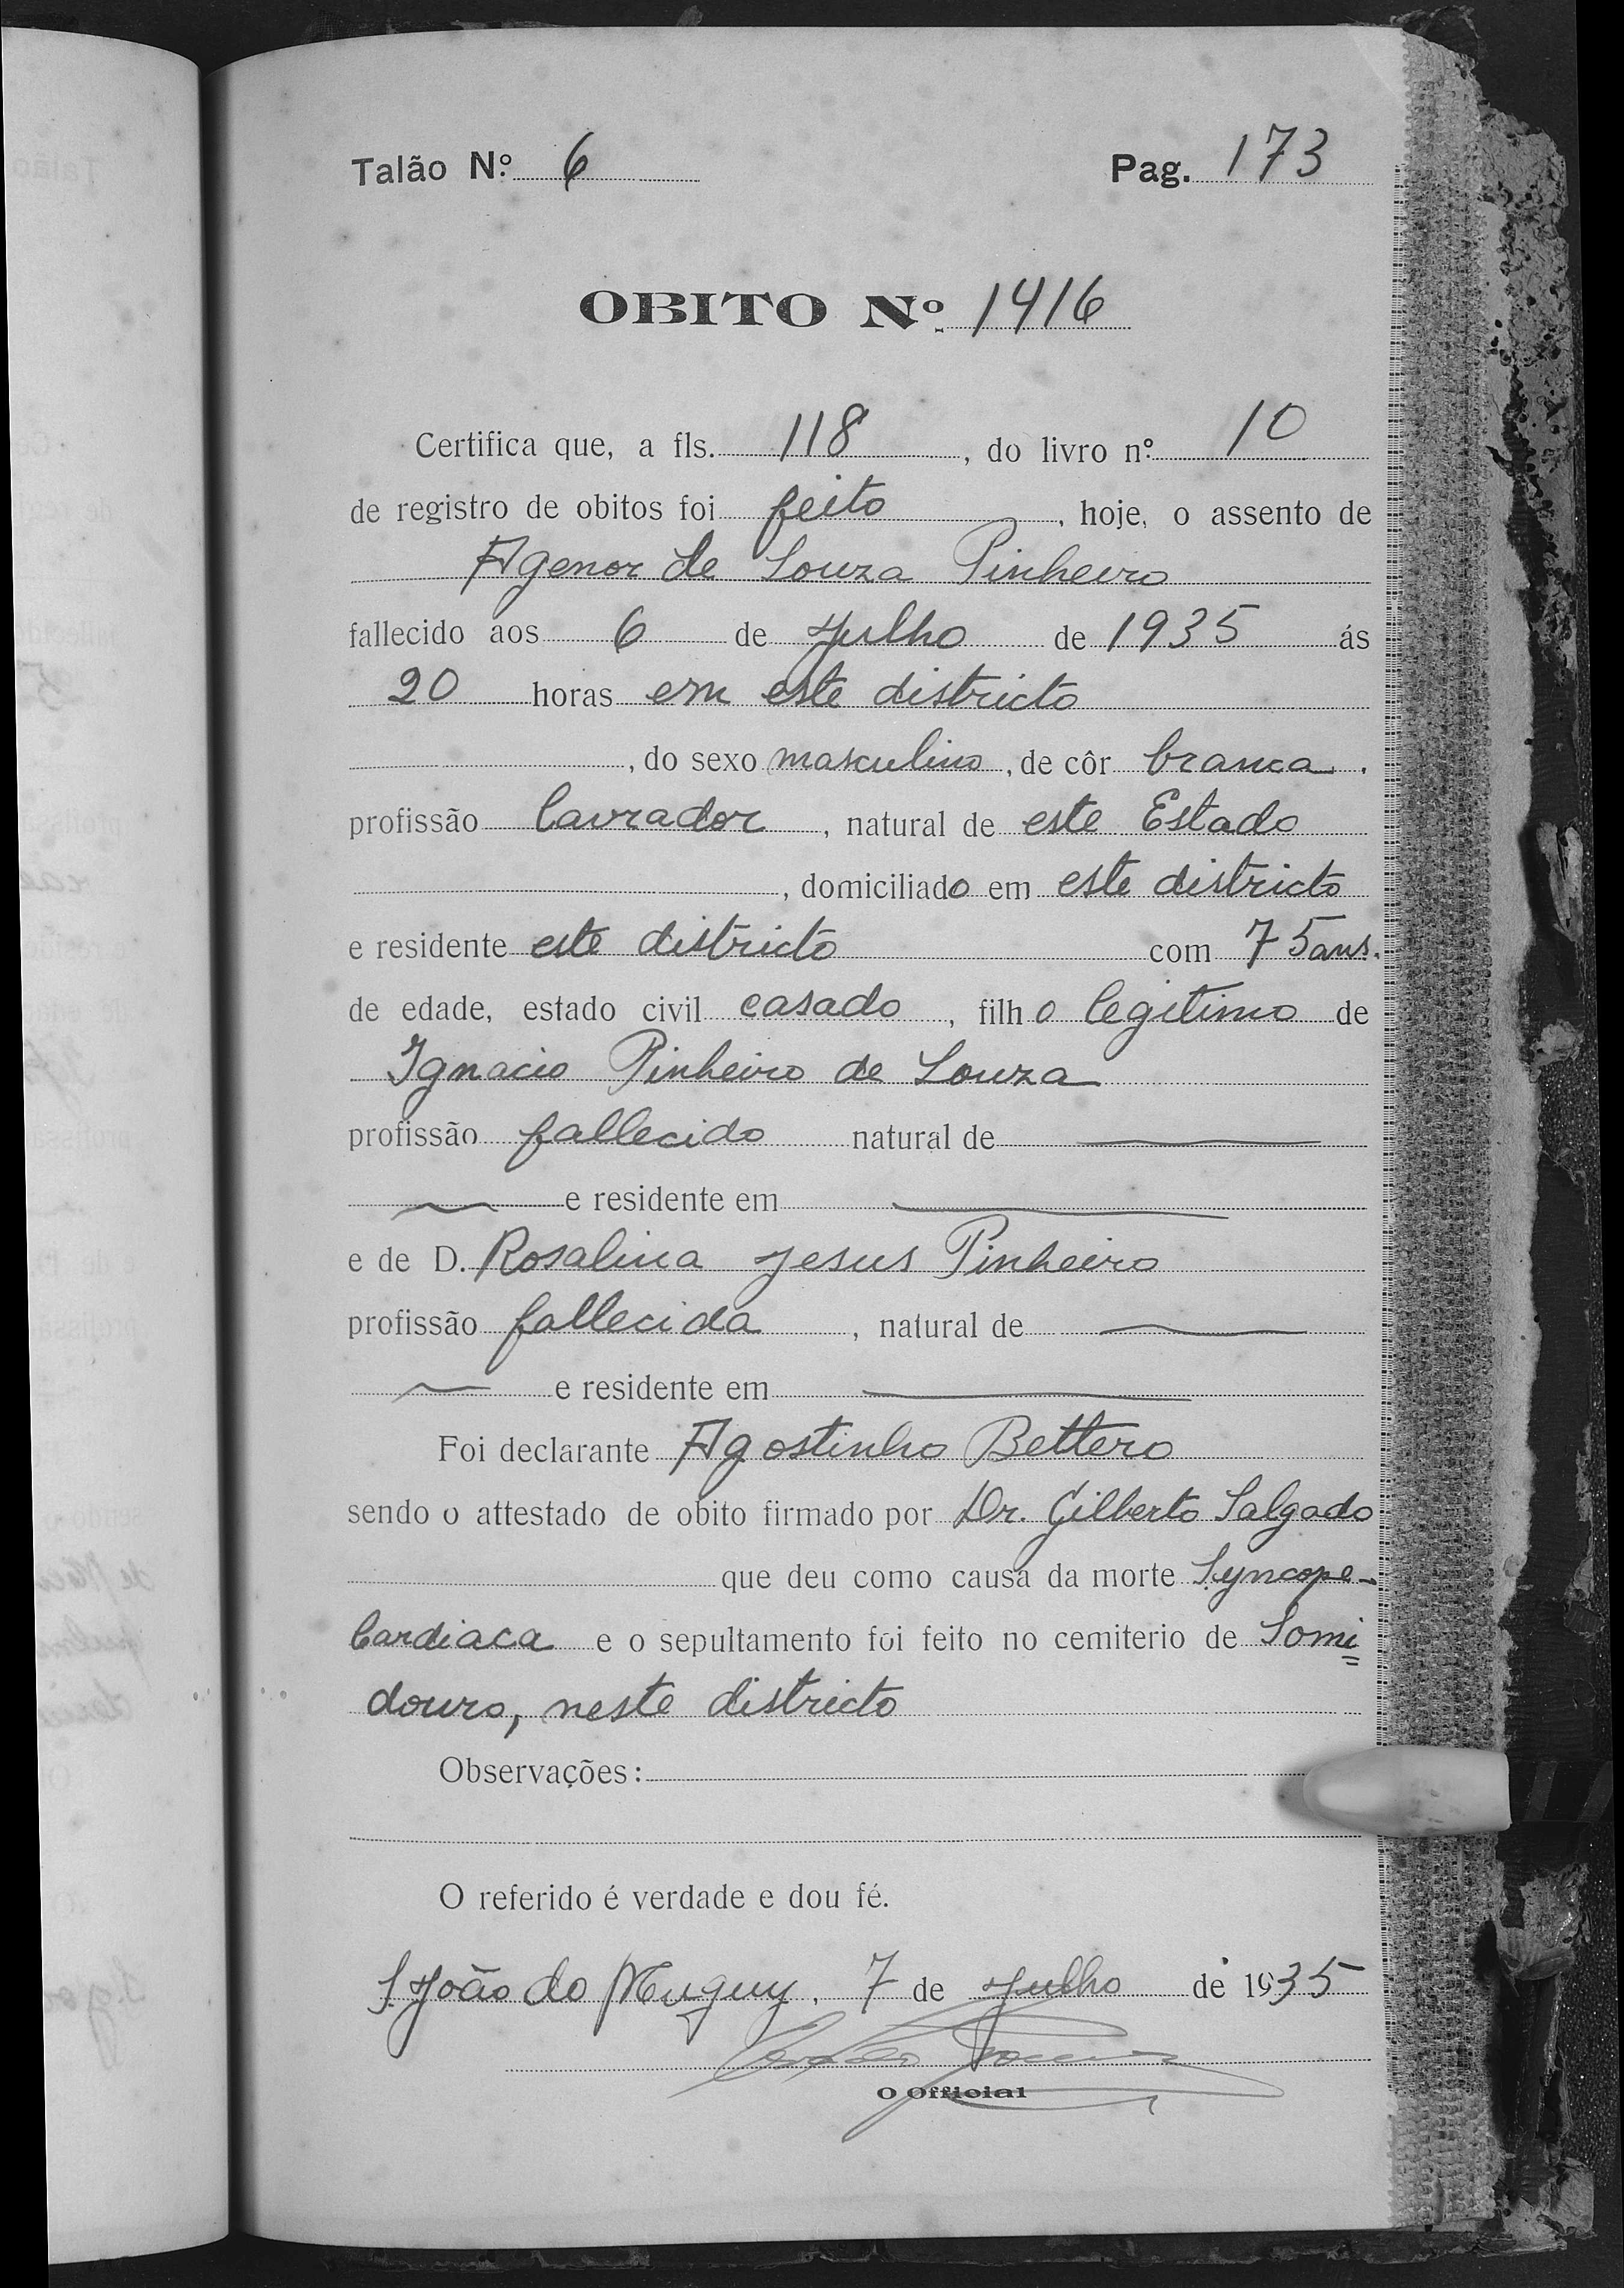 Talão Nº 6 Pag. 173
OBITO Nº 1416
Certifica que, a fls. 118, do livro nº 10
de registro de obitos foi feito, hoje, o assento de
Agenor de Souza Pinheiro
fallecido aos 6 de Julho de 1935 ás
20 horas em este districto
, do sexo masculino, de côr branca.
profissão lavrador, natural de este Estado
, domiciliado em este districto
e residente este districto com 75 ans.
de edade, estado civil casado, filho legitimo de
Ignacio Pinheiro de Souza
profissão fallecido natural de
e residente em
e de D. Rosalina Jesus Pinheiro
profissão fallecida, natural de
e residente em
Foi declarante Agostinho Bettero
sendo o attestado de obito firmado por Dr. Gilberto Salgado
que deu como causa da morte Syncope-
Cardiaca e o sepultamento foi feito no cemiterio de Sumi
douro, neste districto
Observações:
O referido é verdade e dou fé.
S. João do Muquy, 7 de Julho de 1935
O Official